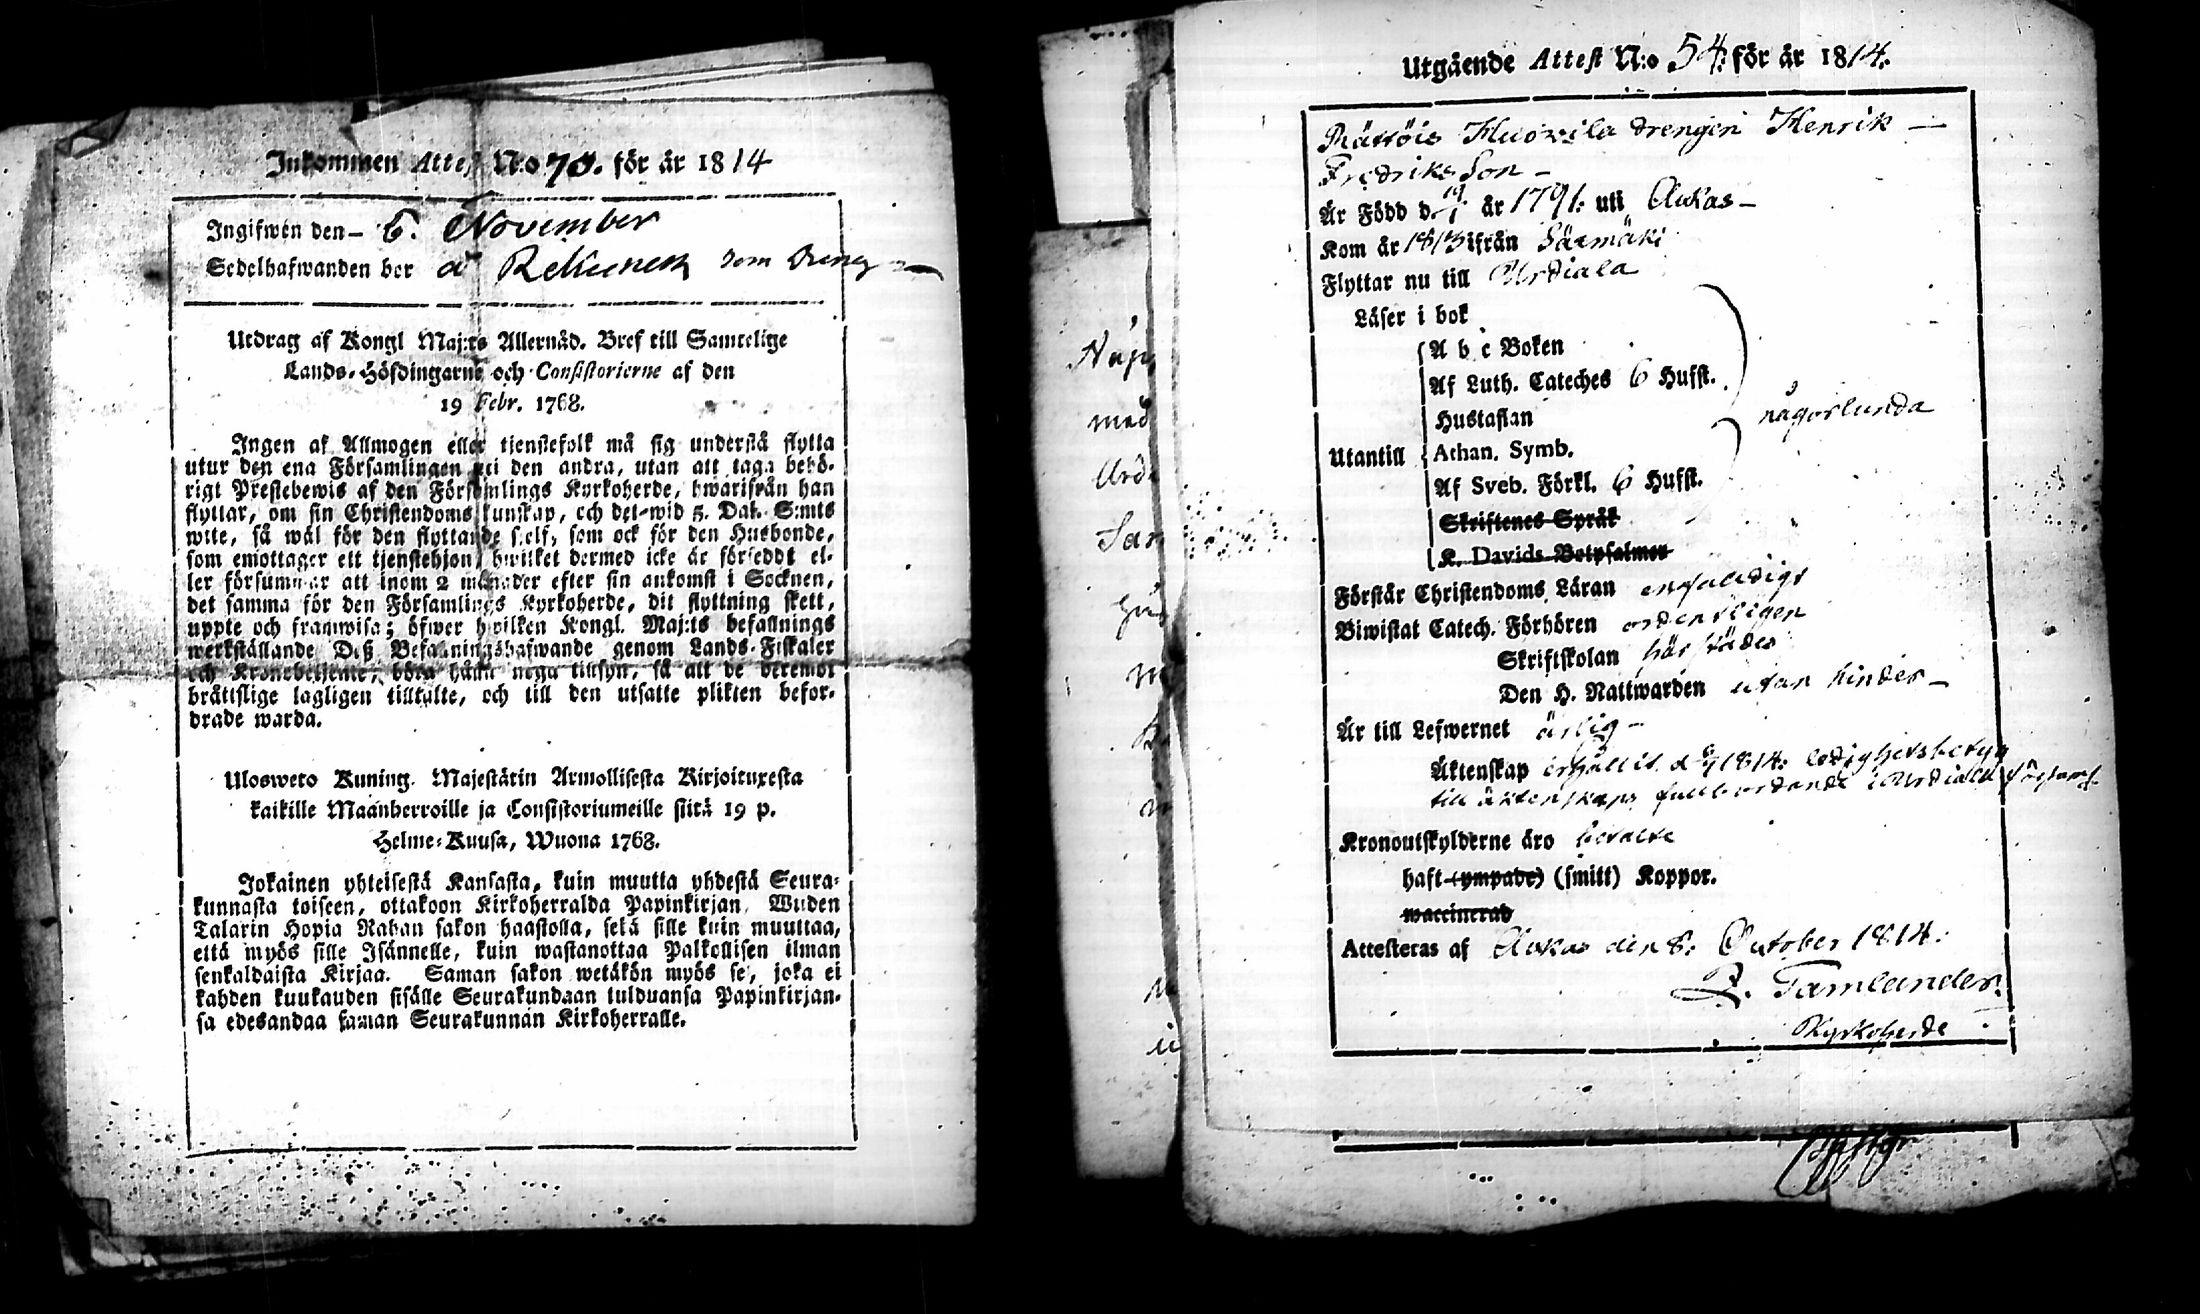 Inkommen Attest N:o 70. för år 1814
Ingifwen den 6. November
Sedelhafwanden bor å Rekunen som dreng
Utdrag af Kongl Maj:ts Allernåd. Bref till Samtelige
Lands-Höfdingarne och Consistorierne af den
19 Febr. 1768.
Ingen af Allmogen eller tjenstefolk må sig understå flytta
utur den ena Församlingen uti den andra, utan att taga behö-
rigt Prestebewis af den Församlings Kyrkoherde, hwarifrån han
flyttar, om sin Christendoms kunskap, och det wid 5. Dal. S:mts
wite, så wäl för den flyttande sielf, som ock för den Husbonde,
som emottager ett tjenstehjon, hwilket dermed icke är försedt el-
ler försummar att inom 2 månader efter sin ankomst i Socknen,
det samma för den Församlings Kyrkoherde, dit flyttning skett,
uppte och framwisa; öfwer hwilken Kongl. Maj:ts befallnings
werkställande Deß Befallningshafwande genom Lands-Fiskaler
och Kronobetjente, böra hålla noga tillsyn, så att de deremot
bråttslige lagligen tilltalte, och till den utsatte plikten befor-
drade warda.
Ulosweto Kuning. Majestätin Armollisesta Kirjoituxesta
kaikille Maanherroille ja Consistoriumeille siitä 19 p.
Helme-Kuusa, Wuona 1768.
Jokainen yhteisestä Kansasta, kuin muutta yhdestä Seura-
kunnasta toiseen, ottakoon Kirkoherralda Papinkirjan, Wuden
Talarin Hopia Rahan sakon haastolla, sekä sille kuin muuttaa,
että myös sille Isännelle, kuin wastanottaa Palkollisen ilman
senkaldaista Kirjaa. Saman sakon wetäkön myös se, joka ei
kahden kuukauden sisälle Seurakundaan tulduansa Papinkirjan-
sa edesandaa saman Seurakunnan Kirkoherralle.
Utgående Attest N:o 54: för år 1814.
Rättöis Huowila drengen Henrik
Fredriks Son
Är Född d. 19/1 år 1791: uti Aukas
Kom år 1813 ifrån Särmäki
Flyttar nu till Urdiala
Läser i bok
A b c Boken
Af Luth. Cateches 6 Hufst.
Hustaflan
någorlunda
Utantill Athan. Symb.
Af Sveb. Förkl. 6 Hufst.
Skriftenes Språk
K. Davids Botpsalmer
Förstår Christendoms Läran enfaldigt
Biwistat Catech. Förhören ordentligen
Skriftskolan härstädes
Den H. Nattwarden utan hinder
Är till Lefwernet ärlig
Äktenskap erhållit d 1814: ledighetsbetyg
till äktenskaps fullbordande i Urdiala församl.
Kronoutskylderne äro betalte
haft (ympade) (smitt) Koppor.
waccinerad
Attesteras af Aukas den 8: October 1814:
Z. Tamlander
Kyrkoherde